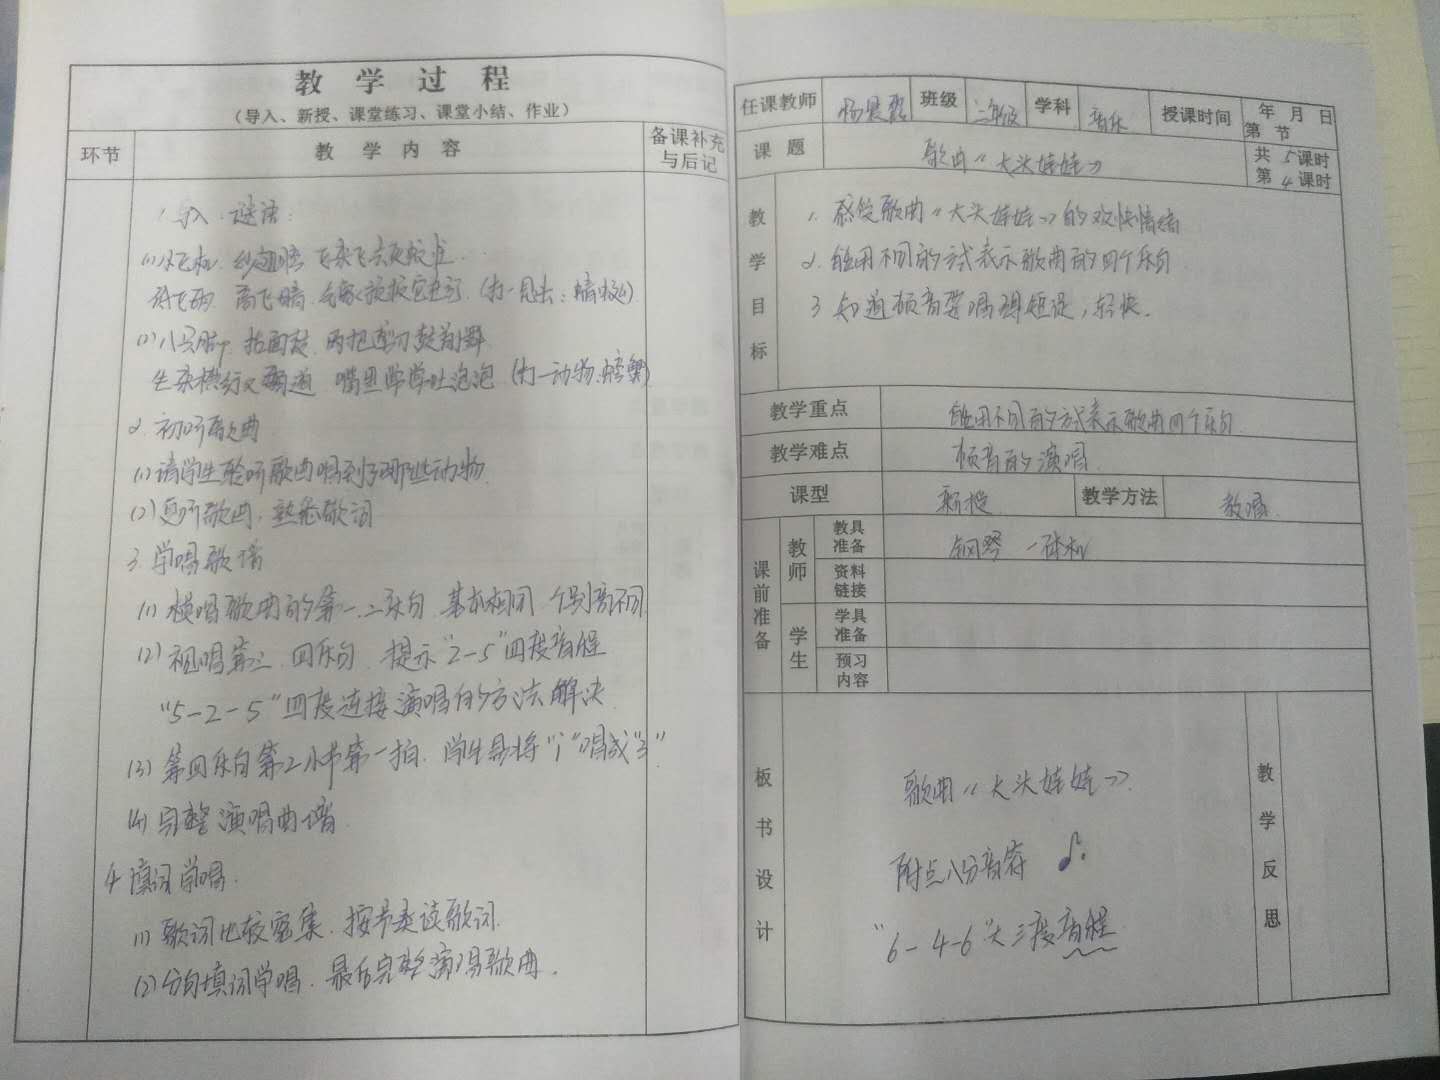 教 学 过 程
（导入、新授、课堂练习、课堂小结、作业）
环节
教 学 内 容
备课补充
与后记
1. 导入 谜语：
(1) 小飞机 纱翅膀 飞来飞去
(打一昆虫：蜻蜓)
(2) 八只脚 抬面鼓 两把剪刀鼓前舞
生来横行又霸道 嘴里常常吐泡泡 (打一动物:螃蟹)
2. 初听歌曲
(1) 请学生聆听歌曲唱到了哪些动物.
(2) 复听歌曲, 熟悉歌词
3. 学唱歌谱
(1) 模唱歌曲的第一.二乐句. 基本相同 个别音不同.
(2) 视唱第三. 四乐句. 提示“2-5”四度音程
“5-2-5”四度连接演唱的方法解决.
(3) 第四乐句第2小节第一拍. 学生易将“i”唱成“3”.
(4) 完整演唱曲谱.
4 填词学唱.
(1) 歌词比较密集. 按节奏读歌词.
(2) 分句填词学唱. 最后完整演唱歌曲.
任课教师 班级 三年级 学科 音乐 授课时间 年 月 日
第 节
课 题 歌曲《大头娃娃》 共 5 课时
第 4 课时
教学目标
1. 感受歌曲《大头娃娃》的欢快情绪
2. 能用不同的方式表示歌曲的四个乐句
3 知道顿音要唱得短促, 轻快.
教学重点 能用不同的方式表示歌曲四个乐句.
教学难点 顿音的演唱.
课型 新授 教学方法 教唱.
课前准备
教师
教具
准备
钢琴 一体机
资料
链接
学生
学具
准备
预习
内容
板书设计
歌曲《大头娃娃》.
附点八分音符 ♪.
“6-4-6”大三度音程
教学反思